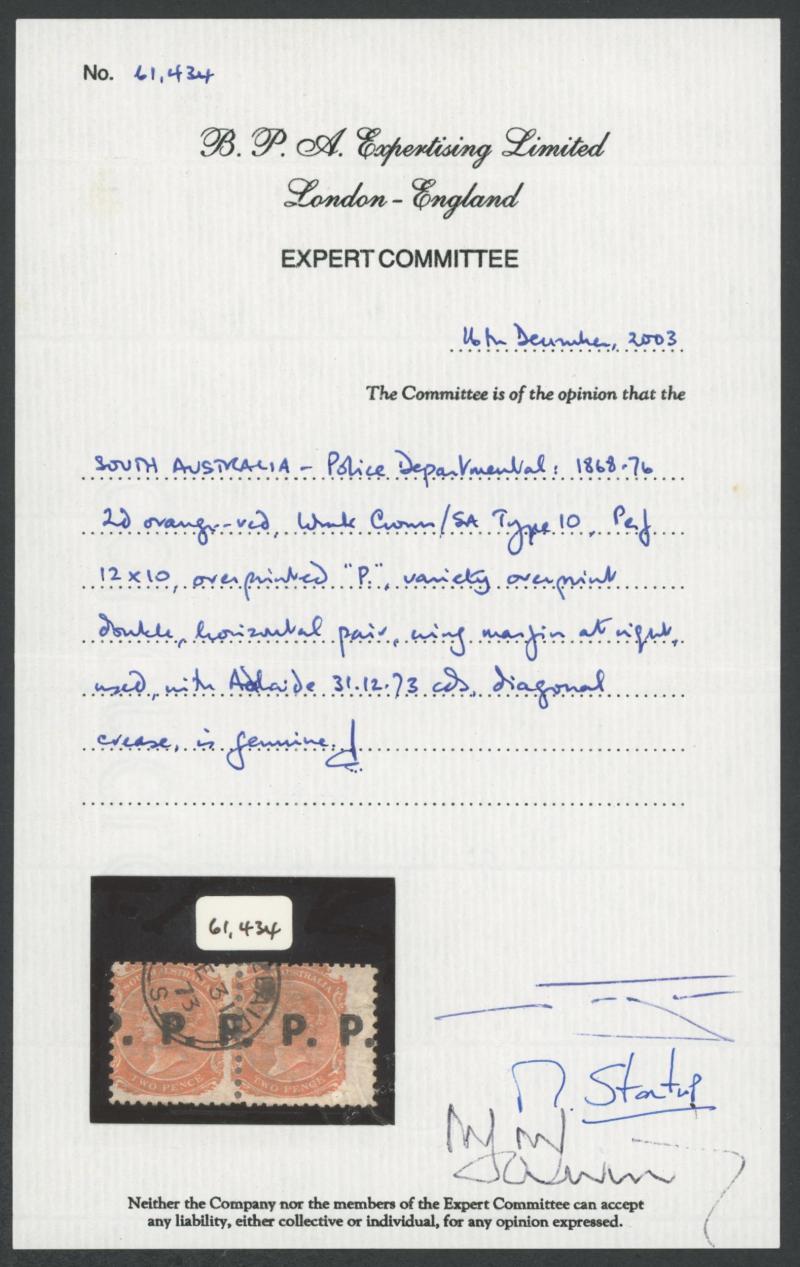 No. 61,434
B. P. A. Expertising Limited
London - England
EXPERT COMMITTEE
16th December, 2003
The Committee is of the opinion that the
SOUTH AUSTRALIA - Police Departmental: 1868-76
2d orange-red, Wmk Crown/SA Type 10, Perf
12x10, overprinted "P.", variety overprint
double, horizontal pair, wing margin at right,
used, with Adelaide 31.12.73 cds, diagonal
crease, is genuine.
61,434
SOUTH AUSTRALIA
E 31
73
P. P. P. P. P.
TWO PENCE TWO PENCE
Neither the Company nor the members of the Expert Committee can accept
any liability, either collective or individual, for any opinion expressed.